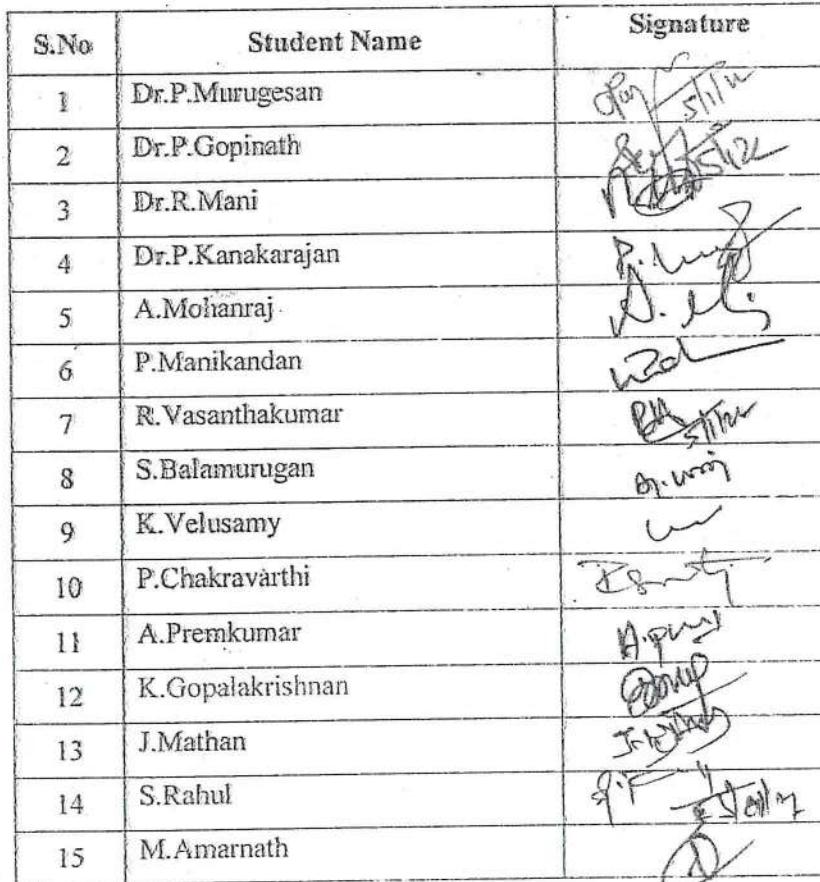 S.No Student Name Signature
1 Dr.P.Murugesan 5/1/22
2 Dr.P.Gopinath 5/1/22
3 Dr.R.Mani
4 Dr.P.Kanakarajan
5 A.Mohanraj
6 P.Manikandan
7 R.Vasanthakumar 5/1/22
8 S.Balamurugan
9 K.Velusamy
10 P.Chakravarthi
11 A.Premkumar
12 K.Gopalakrishnan
13 J.Mathan
14 S.Rahul
15 M.Amarnath